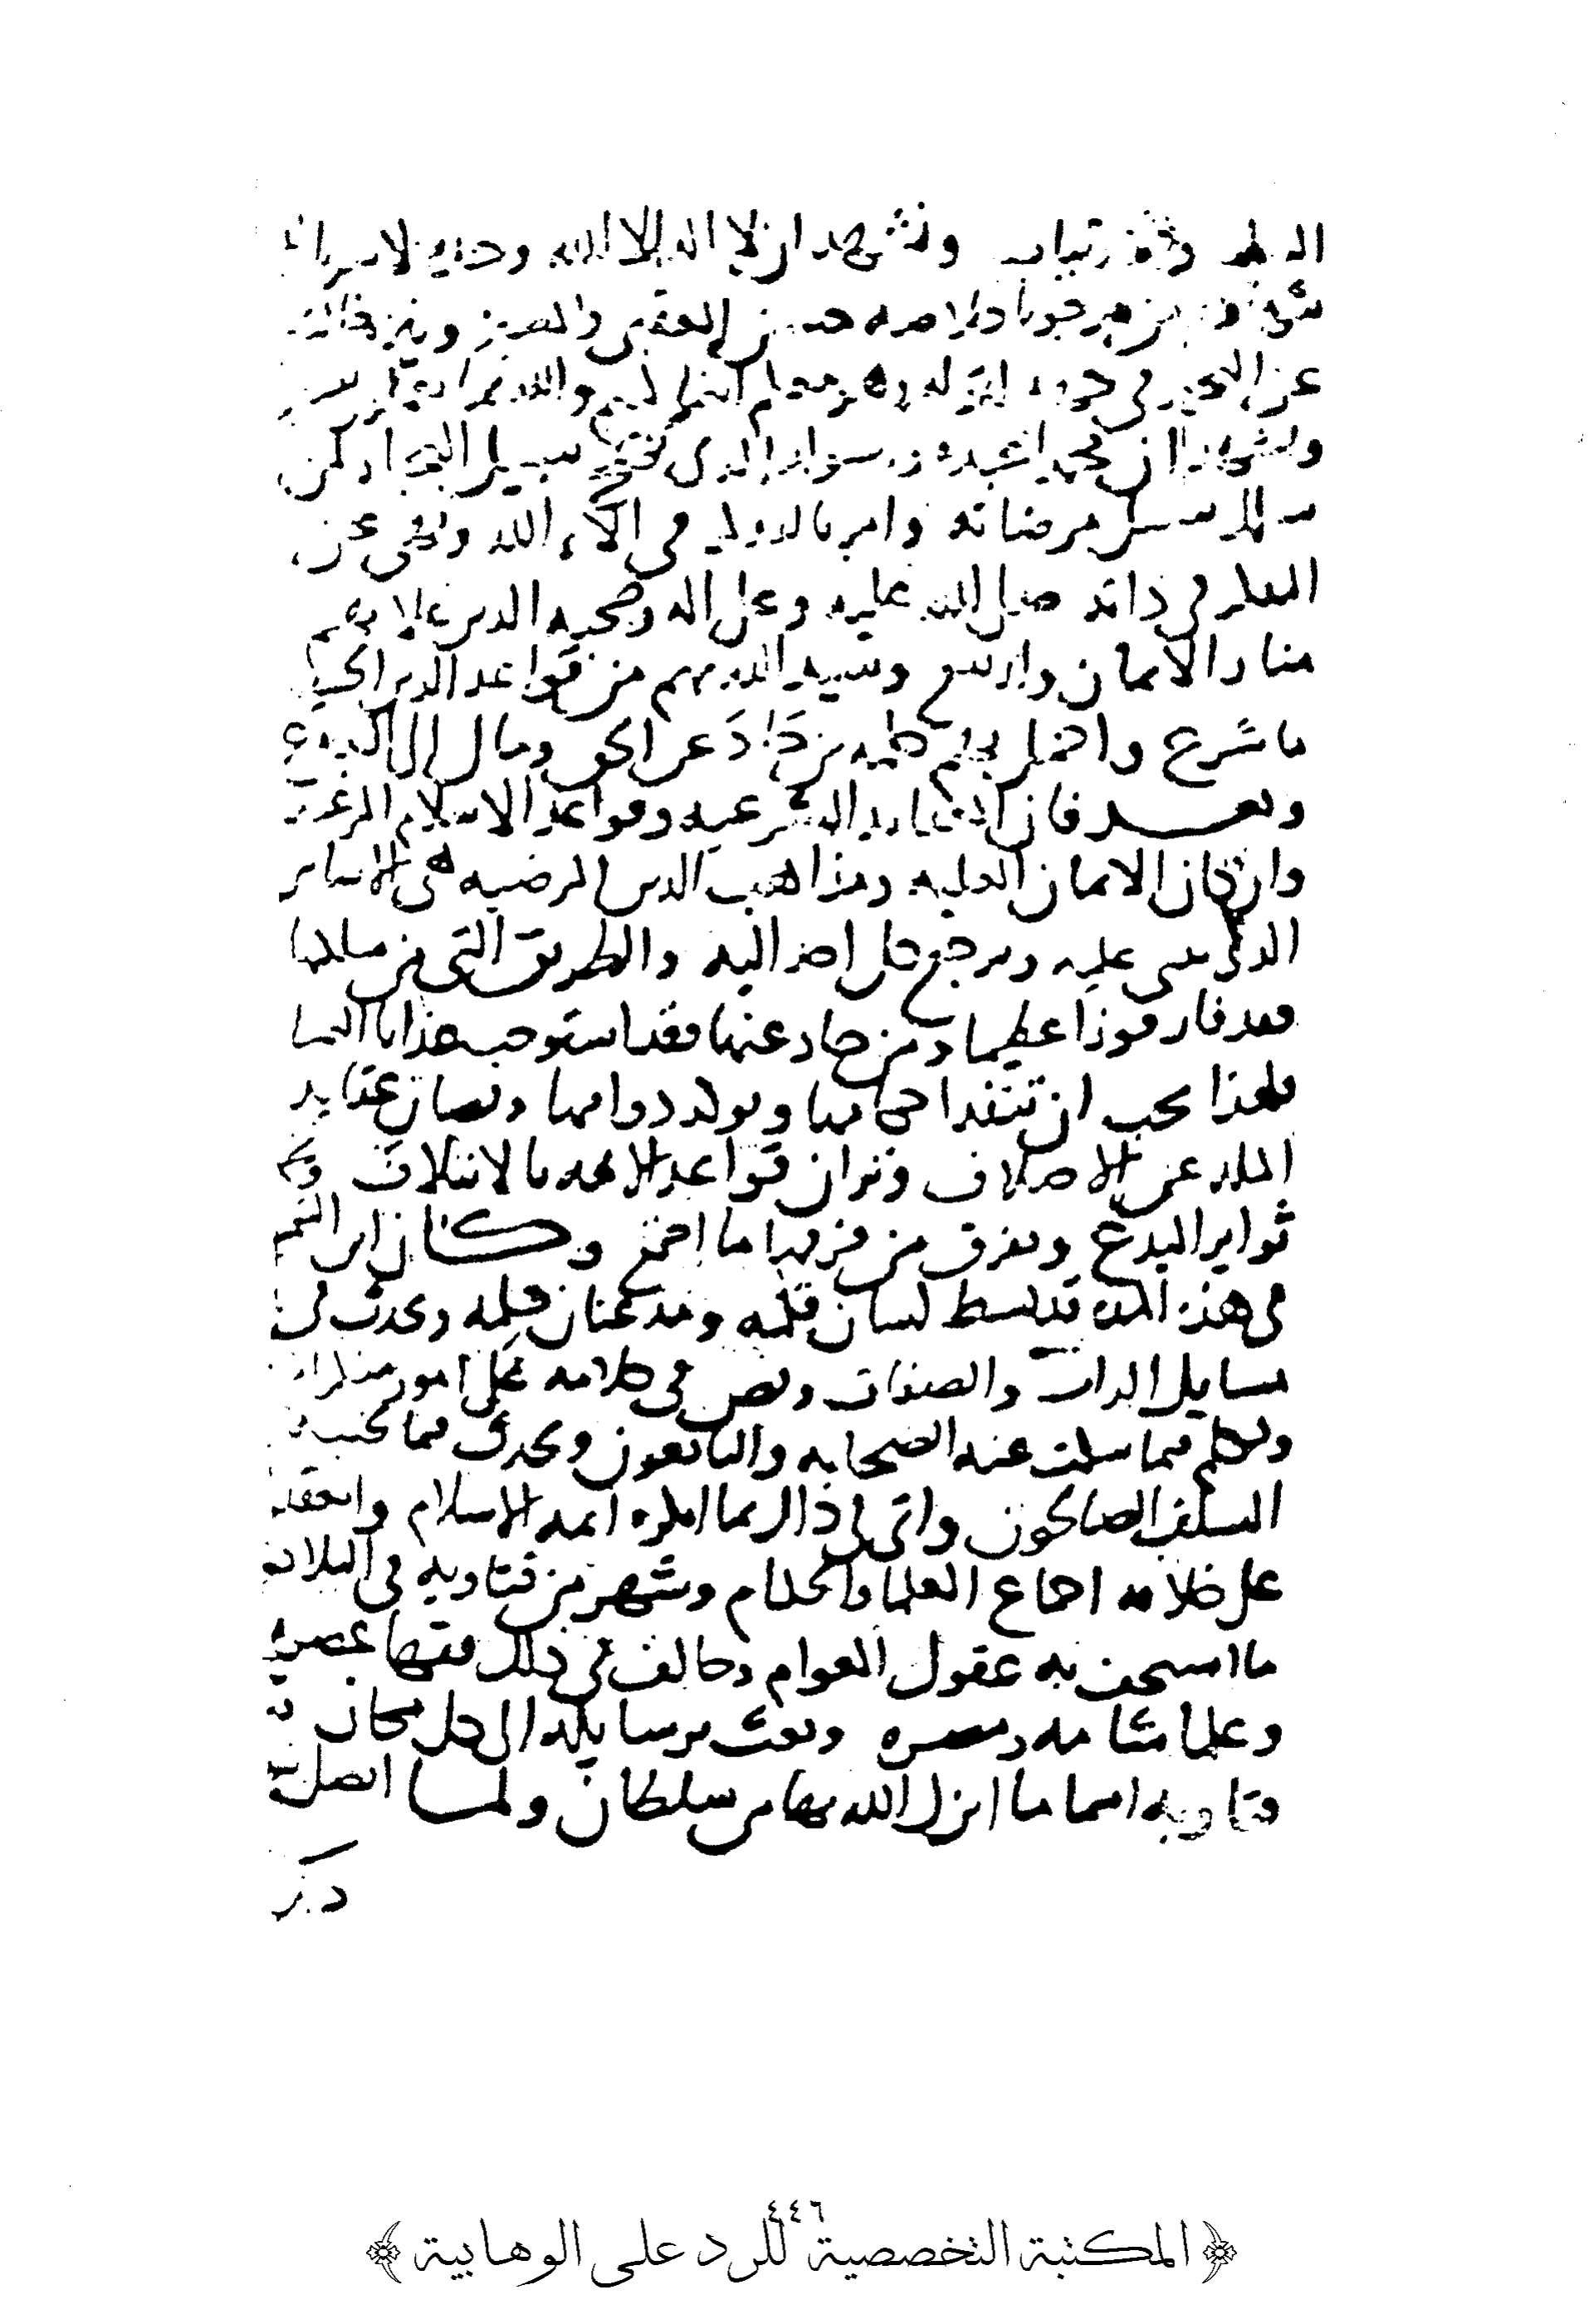 ونشهد ان لا اله الا الله وحده لا
عن في وهو معكم اينما كنتم والله بما
ونشهد ان محمدا عبده ورسوله الذي سبيل النجاة من
سبيل مرضاته وامر بالتفكر في الآء الله ونهى عن
التفكر في ذاته صلى الله عليه وعلى اله وصحبه الذين علا بهم
منار الايمان وارتفع وشيد الله بهم من قواعد الدين الحنيف
ما شرع واخمل بهم كلمه من حاد عن الحق ومال الى البدع
وبعد فان العقايد الشرعيه وقواعد الاسلام المرعيه
واركان الايمان العليه ومذاهب الدين المرضيه هي الاساس
الذي يبنى عليه ومرجع كل احد اليه والطريق التي من سلكها
فقد فاز فوزا عظيما ومن حاد عنها فقد استوجب عذابا اليما
فلهذا يجب ان تنفذ احكامها ويوكد دوامها وتصان عقايد
المله عن الاختلاف وتزان قواعد الامه بالائتلاف
ثواير البدع ويفرق من فرقها ما اجتمع وكان ابن التيميه
في هذه المده قد بسط لسان قلمه ومد عنان كلمه وتحدث في
مسايل الذات والصفات ونص في كلامه على امور منكرات
وتكلم فيما سكت عنه الصحابه والتابعون وتحدث فيما تجنبه
السلف الصالحون واتى في ذلك بما انكره ايمه الاسلام وانعقد
على خلافه اجماع العلما والحكام وشهر من فتاويه في البلاد
ما استخف به عقول العوام وخالف في ذلك فقها عصره
وعلما شامه ومصره وبعث برسايله الى كل مكان
فتاويه اسما ما انزل الله بها من سلطان ولما اتصل
٤٤٦
المكتبة التخصصية للرد على الوهابية